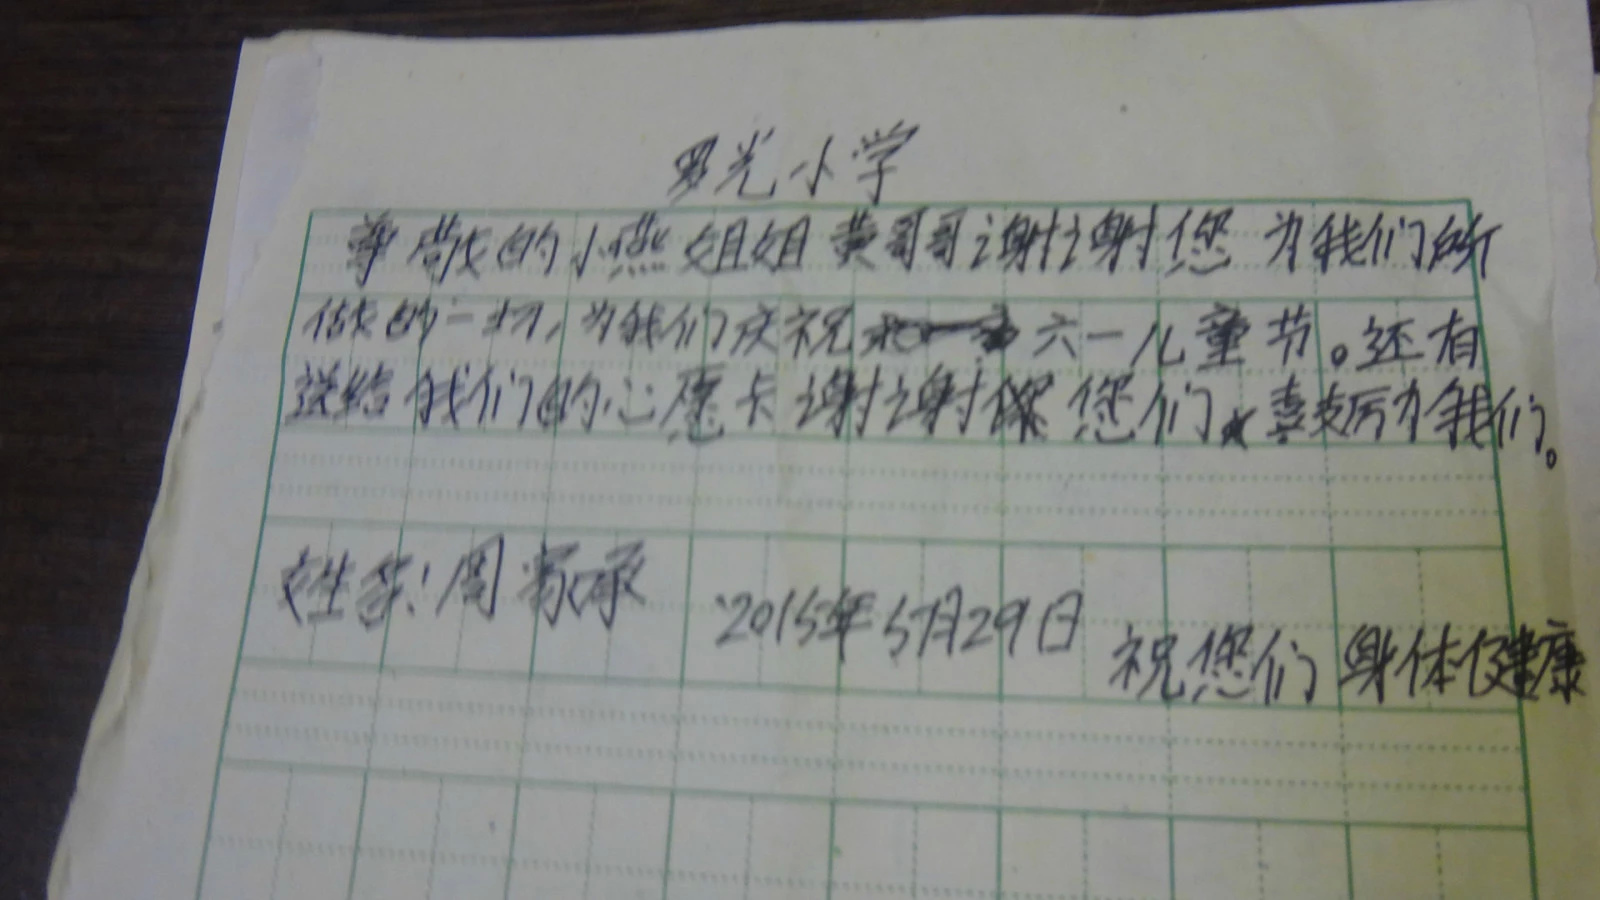 罗光小学
尊敬的小燕姐姐黄哥哥谢谢您为我们所
做的一切,为我们庆祝六一儿童节。还有
送给我们的心愿卡谢谢您们,喜励我们。
姓名:周家承
2015年5月29日
祝您们身体健康